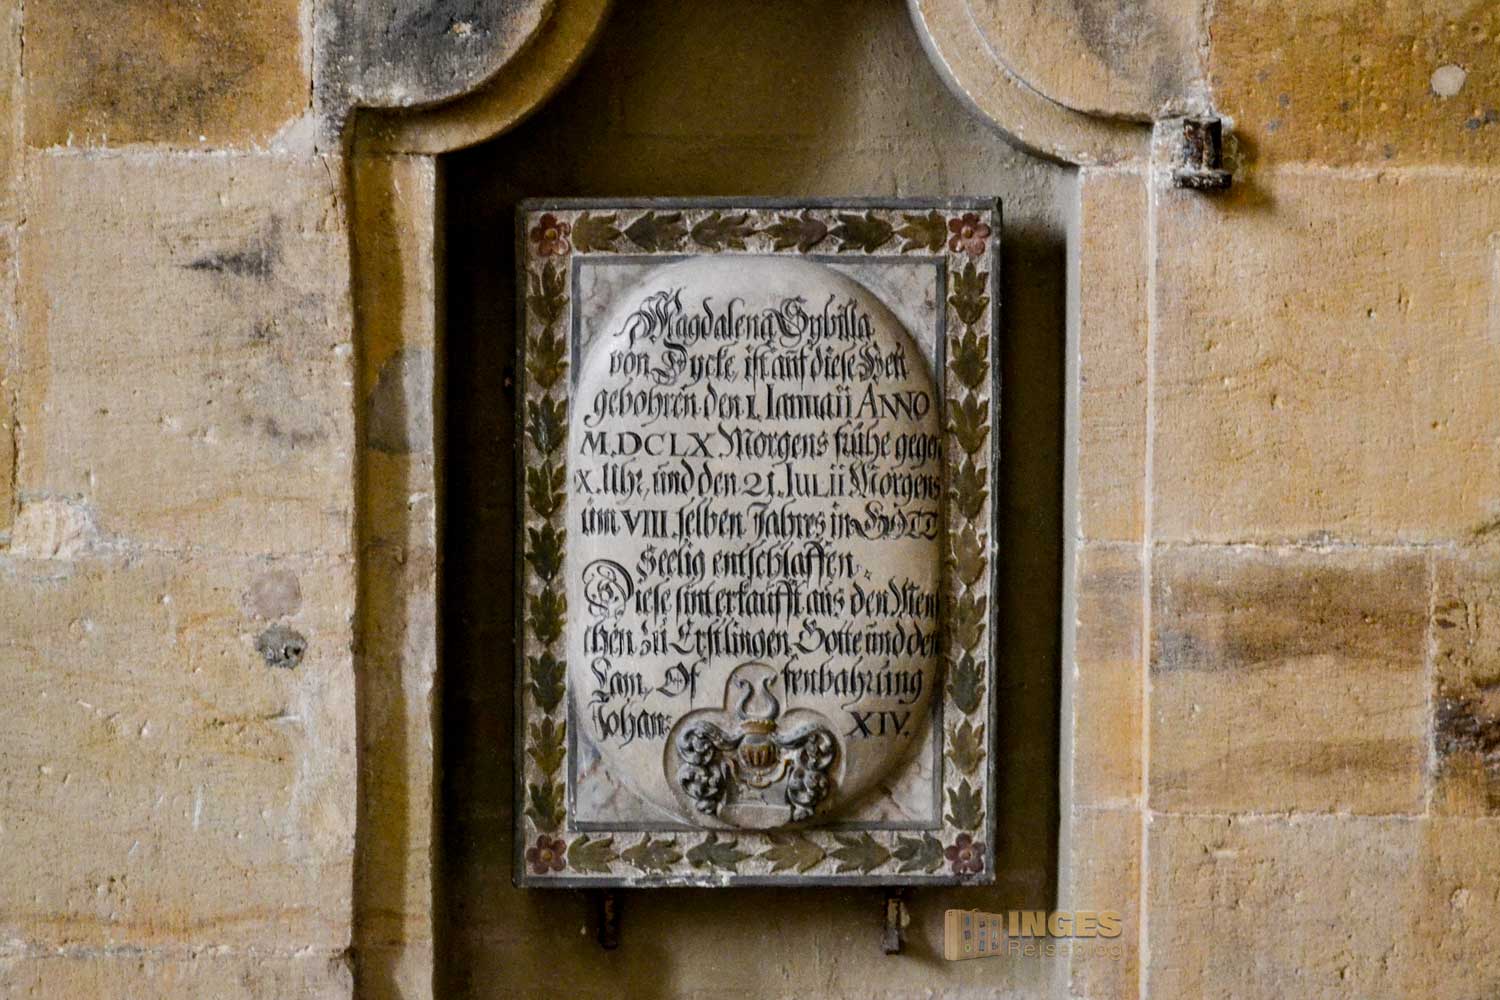 Magdalena Sybilla
von Dycke, ist auf diese Welt
gebohren den 1. Januarii ANNO
M.DCLX Morgens frühe gegen
X. Uhr, und den 21. JULii Morgens
üm VIII. selben Jahres in GOTT
Seelig entschlaffen.
Diese sint erkaufft aus den Men
schen zu Erstlingen Gotte und dem
Lam, Of fenbahrung
Johan: XIV.
INGES
Reiseblog